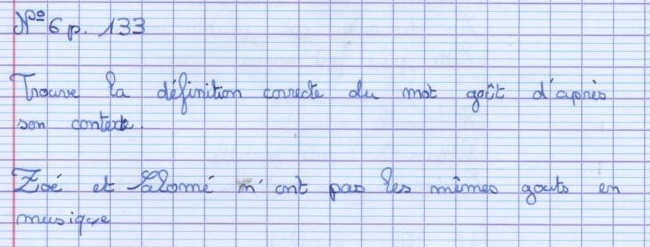 N° 6 p. 133
Trouve la définition correcte du mot goût d'après
son contexte.
Zoé et Salomé n'ont pas les mêmes gouts en
musique